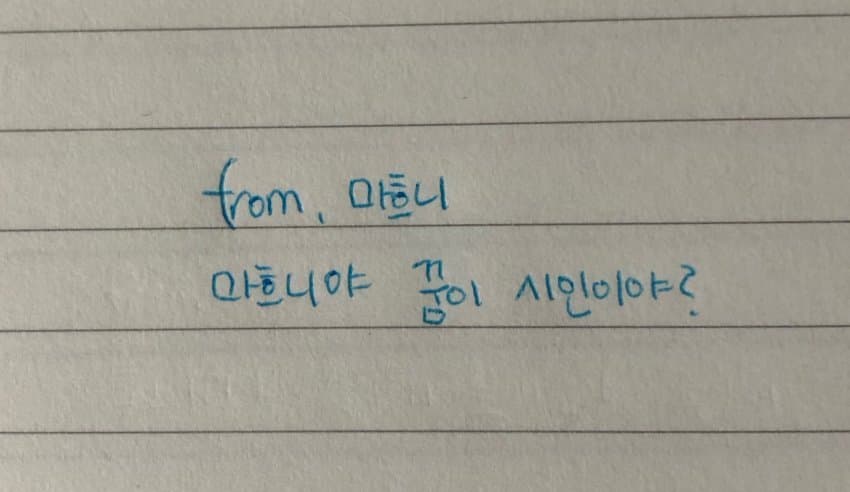 from. 마흐니
마흐니야 꿈이 시인이야?